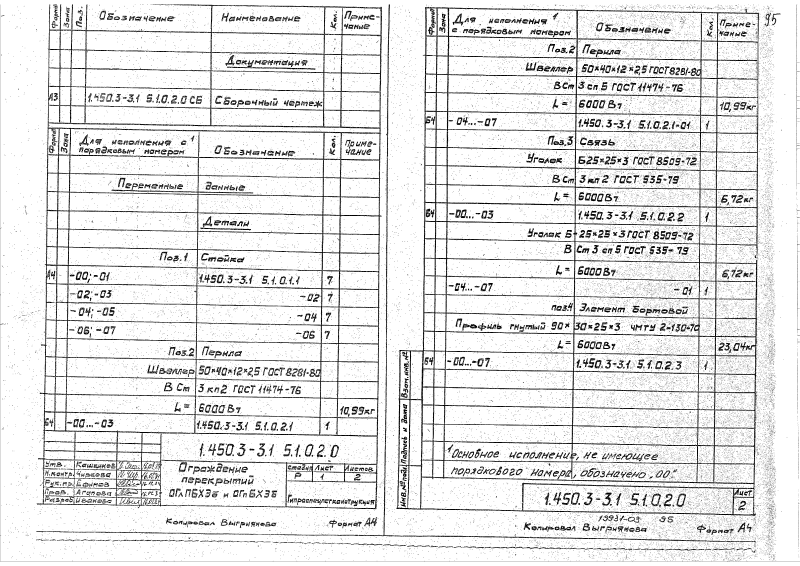 Формат Зона Поз. Обозначение Наименование Кол. Примечание
Документация
А3 1.450.3-3.1 5.1.0.2.0 СБ Сборочный чертеж
Формат Зона Для исполнения с¹ порядковым номером Обозначение Кол. Примечание
Переменные данные
Детали
Поз.1 Стойка
А4 -00; -01 1.450.3-3.1 5.1.0.1.1 7
-02; -03 -02 7
-04; -05 -04 7
-06; -07 -06 7
Поз.2 Перила
Швеллер 50×40×12×2,5 ГОСТ 8281-80
В Ст 3 кп2 ГОСТ 11474-76
L= 6000 Вт 10,99кг
Б4 -00...-03 1.450.3-3.1 5.1.0.2.1 1
1.450.3-3.1 5.1.0.2.0
Утв. Кашников
Н.контр. Чиркова
Рук.мр. Ефимов
Пров. Агапова
Разраб. Иванова
Ограждение
перекрытий
ОГлПБХЭб и ОГлБХЭБ
Стадия Лист Листов
Р 1 2
Гипроспецлегконструкция
Копировал Выгриянова Формат А4
95
Формат Зона Для исполнения¹ с порядковым номером Обозначение Кол. Примечание
Поз.2 Перила
Швеллер 50×40×12×2,5 ГОСТ 8281-80
ВСт 3 сп 5 ГОСТ 11474-76
L= 6000 Вт 10,99кг
Б4 -04...-07 1.450.3-3.1 5.1.0.2.1-01 1
Поз.3 Связь
Уголок Б25×25×3 ГОСТ 8509-72
В Ст 3 кп 2 ГОСТ 535-79
L= 6000 Вт 6,72кг
Б4 -00...-03 1.450.3-3.1 5.1.0.2.2 1
Уголок Б-25×25×3 ГОСТ 8509-72
В Ст 3 сп 5 ГОСТ 535-79
L= 6000 Вт 6,72кг
-04...-07 -01 1
поз4 Элемент Бортовой
Профиль гнутый 90× 30×25×3 ЧМТУ 2-130-70
L= 6000 Вт 23,04кг
Б4 -00...-07 1.450.3-3.1 5.1.0.2.3 1
¹Основное исполнение, не имеющее
порядкового номера, обозначено „00”.
Инв.№подл. Подпись и дата Взам.инв.№
1.450.3-3.1 5.1.0.2.0
Лист
2
15931-03 95
Копировал Выгриянова Формат А4